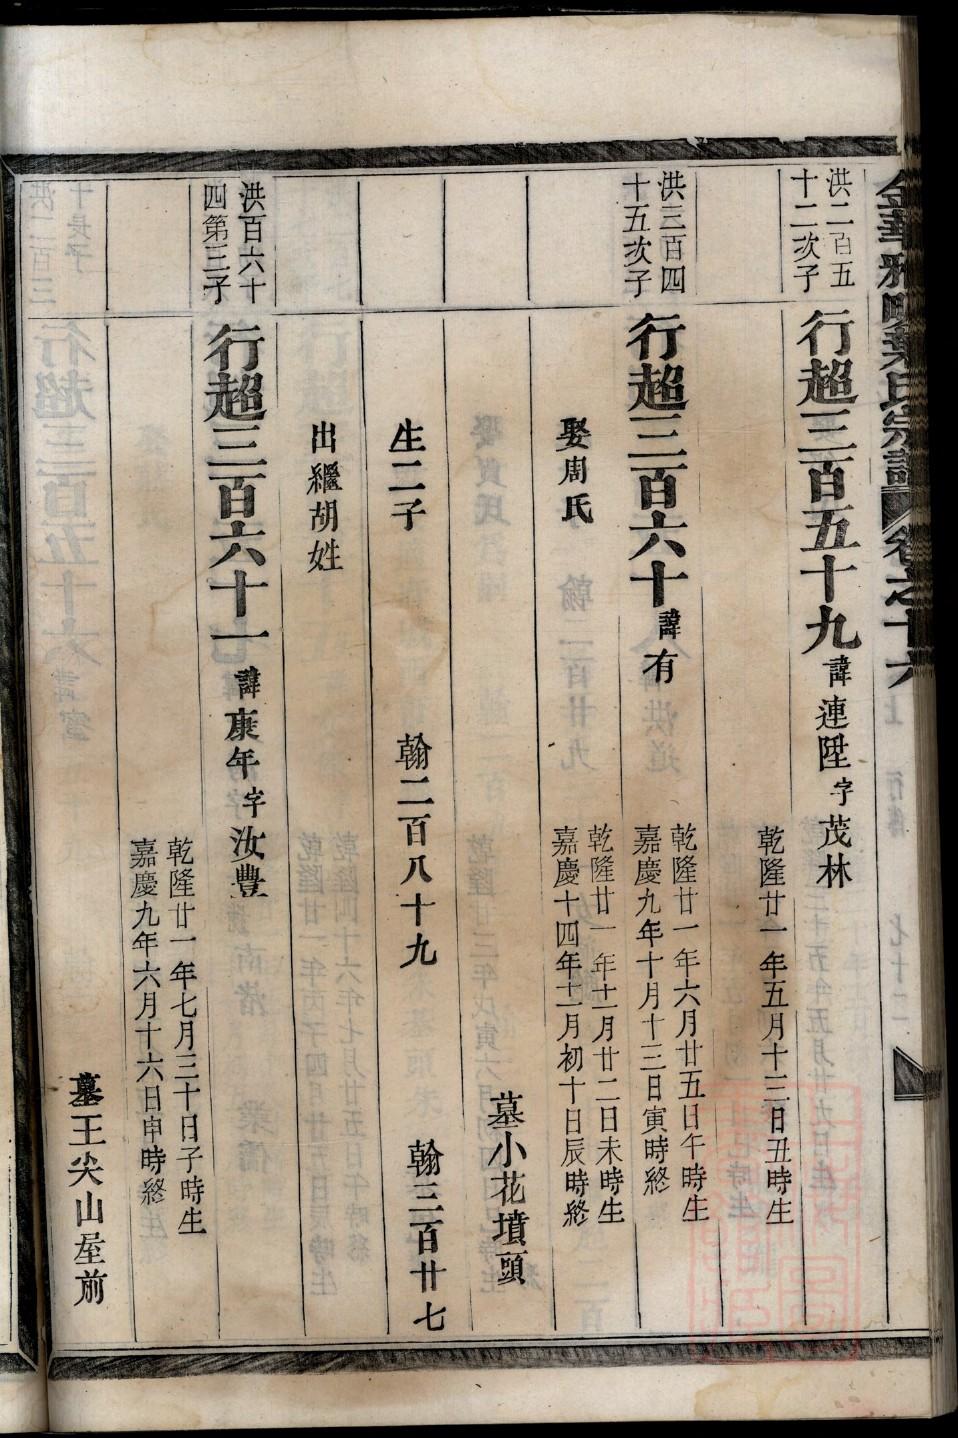 金華雅畈葉氏宗譜 卷之十六
洪二百五
十二次子
行超三百五十九 諱連陞字茂林
乾隆廿一年五月十三日丑時生
洪三百四
十五次子
行超三百六十 諱有
乾隆廿一年六月廿五日午時生
嘉慶九年十月十三日寅時終
娶周氏
乾隆廿一年十一月廿二日未時生
嘉慶十四年十二月初十日辰時終
墓小花墳頭
生二子 翰二百八十九 翰三百廿七
出繼胡姓
洪百六十
四第三子
行超三百六十一 諱康年字汝豐
乾隆廿一年七月三十日子時生
嘉慶九年六月十六日申時終
墓王尖山屋前